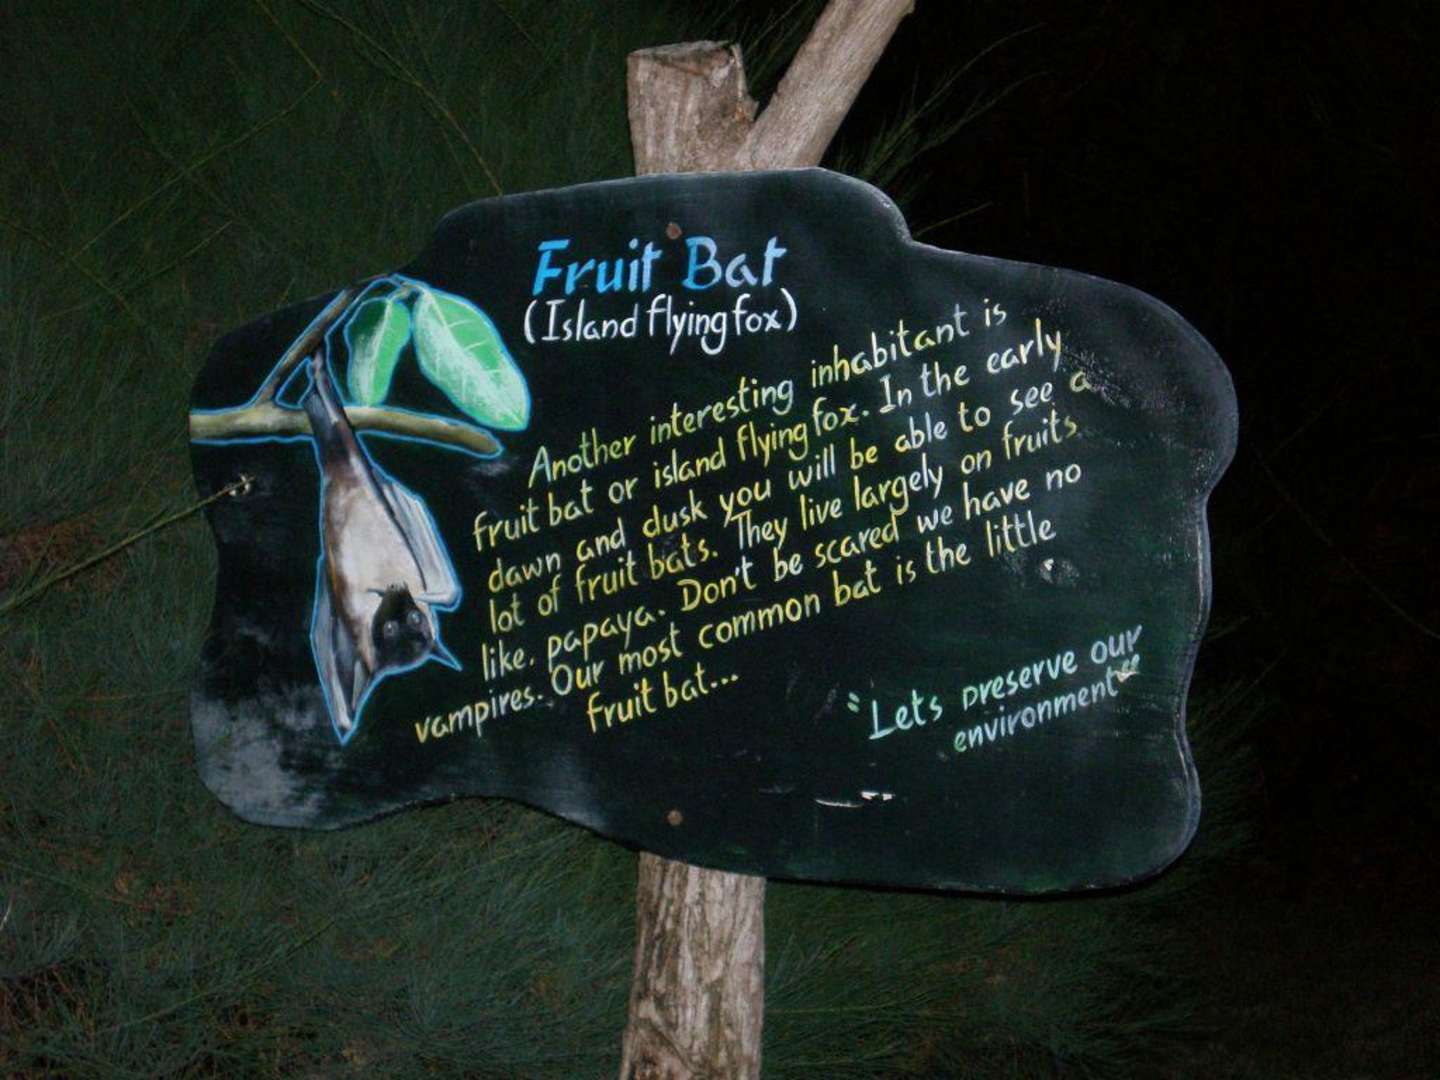 Fruit Bat
(Island flying fox)
Another interesting inhabitant is
fruit bat or island flying fox. In the early
dawn and dusk you will be able to see a
lot of fruit bats. They live largely on fruits
like. papaya. Don't be scared we have no
vampires. Our most common bat is the little
fruit bat...
"Lets preserve our
environment"